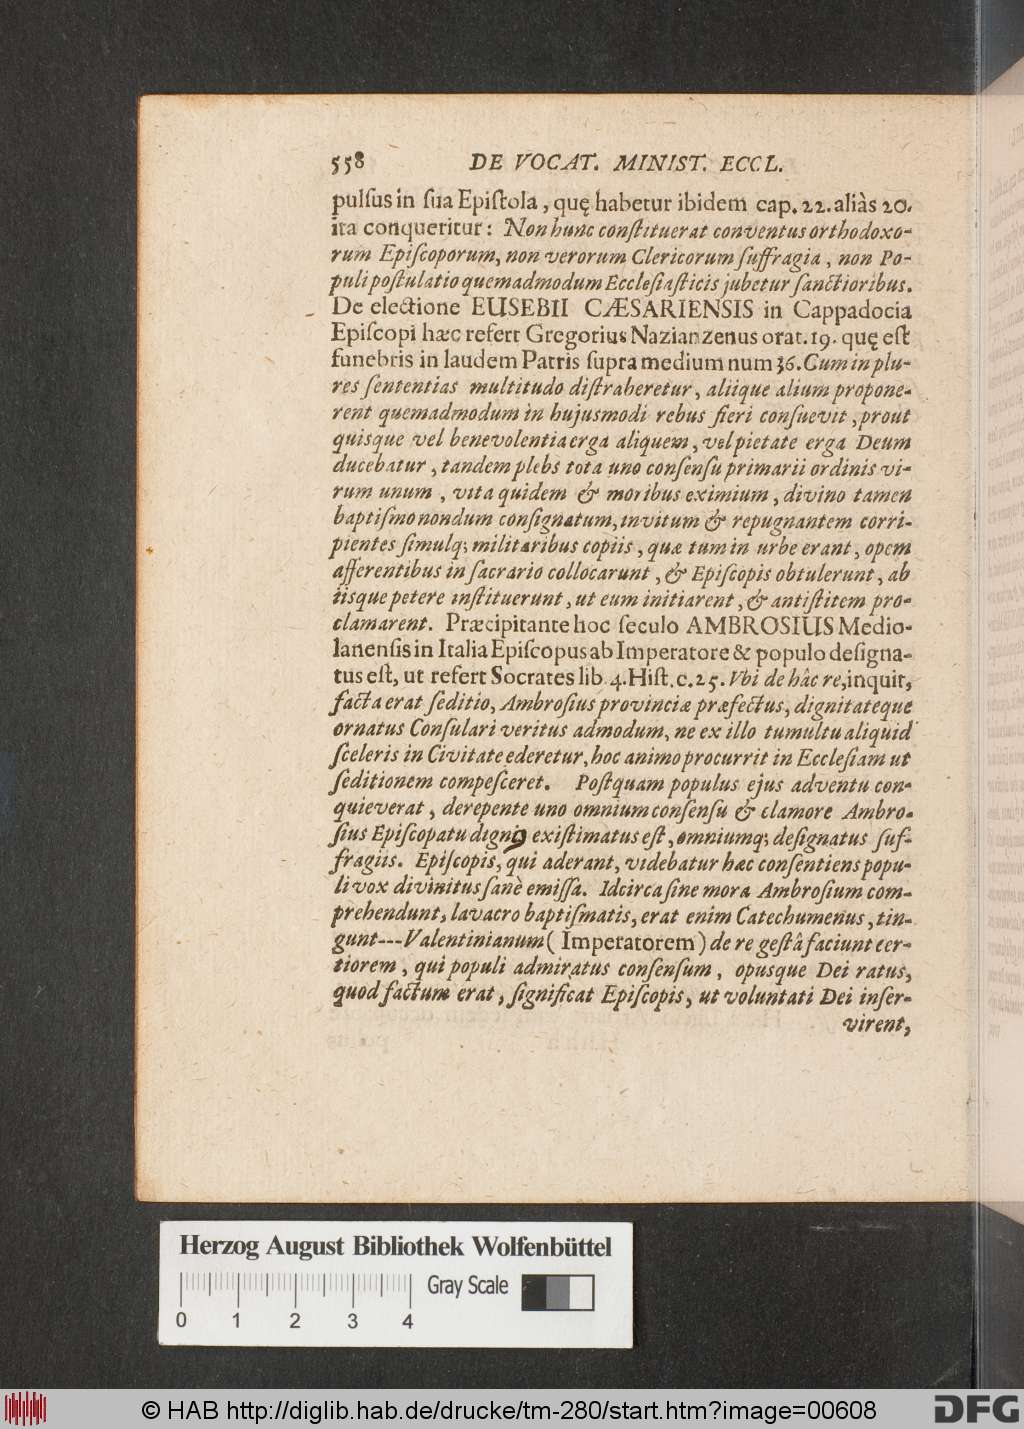 558 DE VOCAT. MINIST. ECCL.
pulſus in ſua Epiſtola, quę habetur ibidem cap. 22. aliàs 20.
ita conqueritur: Non hunc conſtituerat conventus orthodoxo-
rum Epiſcoporum, non verorum Clericorum ſuffragia, non Po-
puli poſtulatio quemadmodum Eccleſiaſticis jubetur ſanctioribus.
De electione EUSEBII CÆSARIENSIS in Cappadocia
Epiſcopi hæc refert Gregorius Nazianzenus orat. 19. quę eſt
funebris in laudem Patris ſupra medium num 36. Cum in plu-
res ſententias multitudo diſtraheretur, aliique alium propone-
rent quemadmodum in hujusmodi rebus fieri conſuevit, prout
quisque vel benevolentia erga aliquem, vel pietate erga Deum
ducebatur, tandem plebs tota uno conſenſu primarii ordinis vi-
rum unum, vita quidem & moribus eximium, divino tamen
baptiſmo nondum conſignatum, invitum & repugnantem corri-
pientes ſimulq; militaribus copiis, quæ tum in urbe erant, opem
afferentibus in ſacrario collocarunt, & Epiſcopis obtulerunt, ab
iisque petere inſtituerunt, ut eum initiarent, & antiſtitem pro-
clamarent. Præcipitante hoc ſeculo AMBROSIUS Medio-
lanenſis in Italia Epiſcopus ab Imperatore & populo deſigna-
tus eſt, ut refert Socrates lib. 4. Hiſt. c. 25. Vbi de hâc re, inquit,
facta erat ſeditio, Ambroſius provinciæ præfectus, dignitateque
ornatus Conſulari veritus admodum, ne ex illo tumultu aliquid
ſceleris in Civitate ederetur, hoc animo procurrit in Eccleſiam ut
ſeditionem compeſceret. Poſtquam populus ejus adventu con-
quieverat, derepente uno omnium conſenſu & clamore Ambro-
ſius Epiſcopatu dignꝰ exiſtimatus eſt, omniumq; deſignatus ſuf-
fragiis. Epiſcopis, qui aderant, videbatur hæc conſentiens popu-
li vox divinitus ſanè emiſſa. Idcirca ſine mora Ambroſium com-
prehendunt, lavacro baptiſmatis, erat enim Catechumenus, tin-
gunt---Valentinianum (Imperatorem) de re geſtâ faciunt cer-
tiorem, qui populi admiratus conſenſum, opusque Dei ratus,
quod factum erat, ſignificat Epiſcopis, ut voluntati Dei inſer-
virent,
Herzog August Bibliothek Wolfenbüttel
Gray Scale
0 1 2 3 4
© HAB http://diglib.hab.de/drucke/tm-280/start.htm?image=00608
DFG